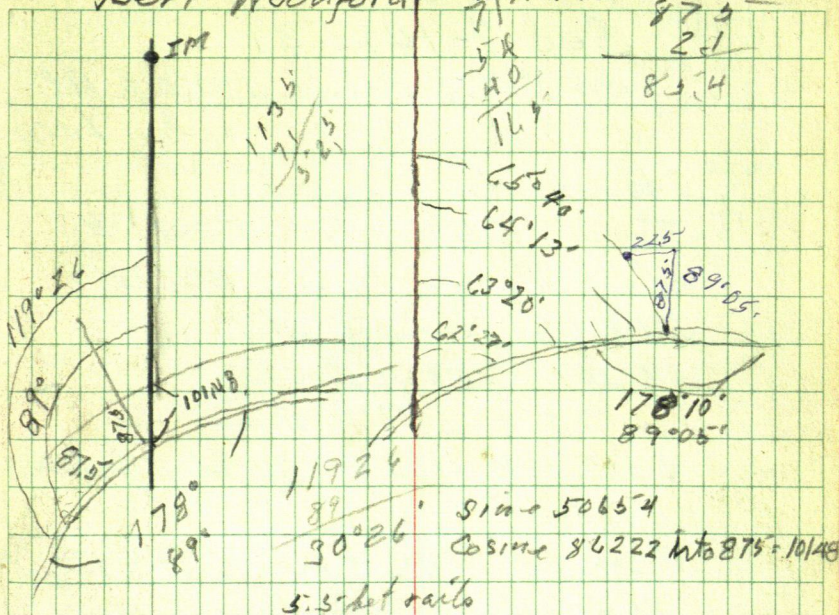 IM
875
21
854
71
54
40
165
1135
71
525
65° 40'
64° 13'
63° 20'
62° 27'
225
87.5
89° 05'
119° 26
89°
87.5
87.5
101.48
178° 10'
89° 05'
178°
89°
119 26
89
30° 26'
sine 50654
Cosine 86222 into 875 = 10148
5.5 bet rails